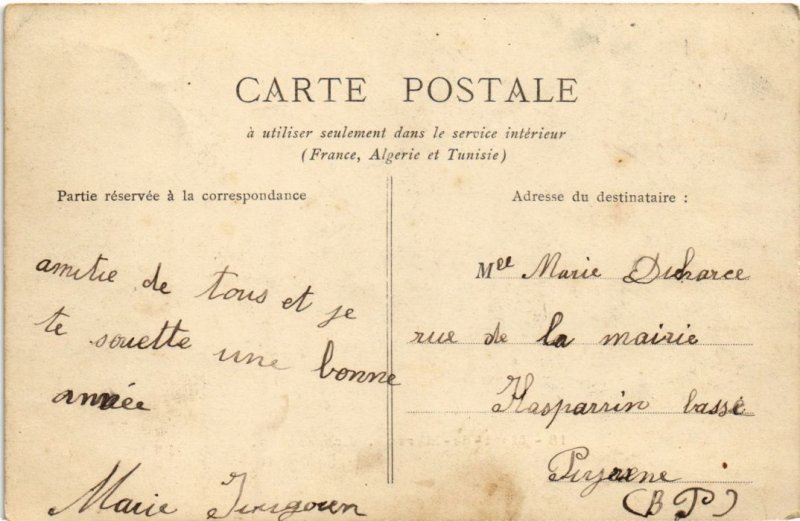 CARTE POSTALE
à utiliser seulement dans le service intérieur
(France, Algerie et Tunisie)
Partie réservée à la correspondance
amitie de tous et je
te souette une bonne
année
Marie
Adresse du destinataire :
Mlle Marie Duharce
rue de la mairie
Hasparrin basse
(B P)